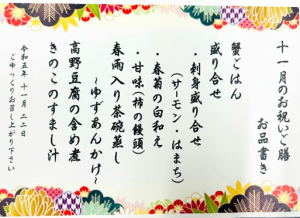 十一月のお祝いご膳
お品書き
蟹ごはん
盛り合せ
・刺身盛り合せ
（サーモン・はまち）
・春菊の白和え
・甘味（柿の饅頭）
春雨入り茶碗蒸し
～ゆずあんかけ～
高野豆腐の含め煮
きのこのすまし汁
令和五年 十一月 二二日
ごゆっくりお召し上がり下さい